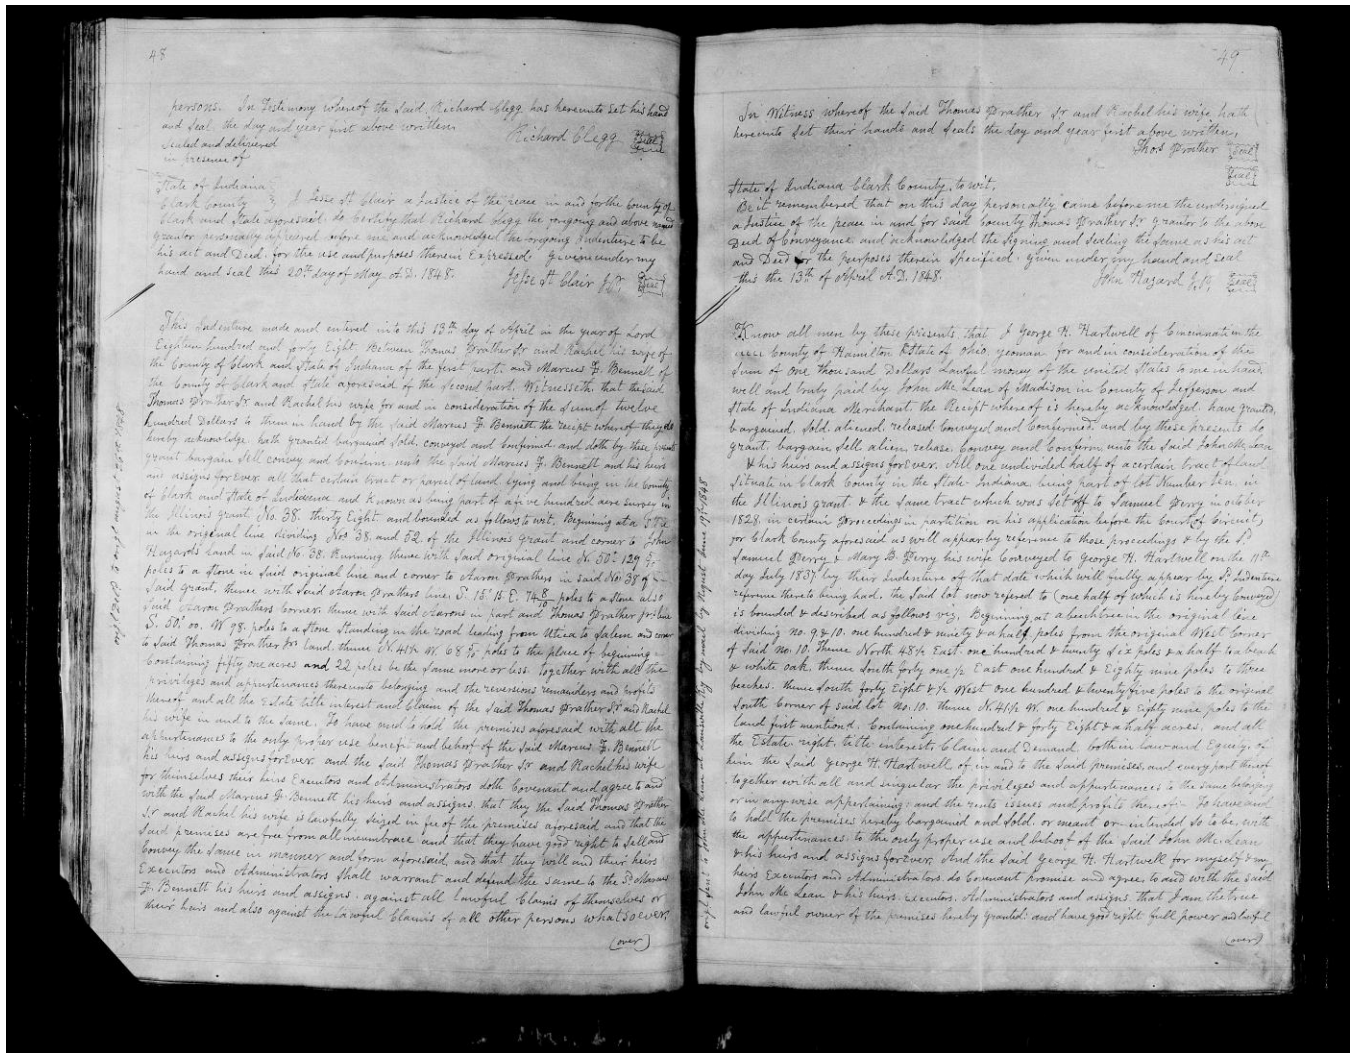 48
persons. In Testimony whereof the Said Richard Clegg has hereunto Set his hand
and Seal, the day and year first above written
Sealed and delivered
in presence of
Richard Clegg Seal
State of Indiana
Clark County I Jesse St Clair a Justice of the peace in and for the County of
Clark and State aforesaid, do Certify that Richard Clegg the forgoing and above named
grantor personally appeared before me and acknowledged the foregoing Indenture to be
his act and Deed, for the use and purposes therein Expressed. Given under my
hand and Seal this 20th day of May A.D. 1848.
Jesse St Clair J.P. Seal
This Indenture made and entered into this 13th day of April in the year of Lord
Eighteen hundred and forty Eight. Between Thomas Prather Sr and Rachel his wife of
the County of Clark and State of Indiana of the first part, and Marcus F. Bennett of
the County of Clark and State aforesaid of the Second part. Witnesseth, that the said
Thomas Prather Sr and Rachel his wife for and in consideration of the Sum of twelve
hundred Dollars to them in hand by the Said Marcus F. Bennett the receipt whereof they do
hereby acknowledge, hath granted bargained Sold, conveyed and Confirmed and doth by these presents
grant bargain Sell convey and Confirm unto the Said Marcus F. Bennett and his heirs
and assigns forEver all that certain tract or parcel of land, lying and being in the County
of Clark and State of Indiana and known as being part of a five hundred acre survey in
the Illinois grant No. 38. thirty Eight. and bounded as follows to wit, Beginning at a Stone
in the original line dividing Nos 38. and 52. of the Illinois Grant and corner to John
Hazards land in Said No. 38. Running thence with Said original line N. 50° 129
poles to a Stone in Said original line and corner to Aaron Prathers in said No. 38 of
Said grant, thence with Said Aaron Prathers line S. 15. E. 74 8/10 poles to a Stone also
Said Aaron Prathers Corner, thence with Said Aarons in part and Thomas Prather jrs line
S. 50° 00. W 98. poles to a Stone Standing in the road leading from Utica to Salem and corner
to Said Thomas Prather Jrs land, thence N. 41½ W. 68 poles to the place of beginning
Containing fifty one acres and 22 poles be the Same more or less. together with all the
privileges and appurtenances thereunto belonging and the reversions remainders and profits
thereof and all the Estate title interest and Claim of the Said Thomas Prather Sr and Rachel
his wife in and to the Same. To have and to hold the premises aforesaid with all the
appurtenances to the only proper use benefit and behoof of the Said Marcus F. Bennett
his heirs and assigns forEver. and the Said Thomas Prather Sr and Rachel his wife
for themselves their heirs Executors and Administrators doth Covenant and agree to and
with the Said Marcus F. Bennett his heirs and assigns, that they the Said Thomas Prather
Sr and Rachel his wife is lawfully Seized in fee of the premises aforesaid and that the
Said premises are free from all incumbrance and that they have good right to Sell and
Convey the Same in manner and form aforesaid, and that they will and their heirs
Executors and Administrators Shall warrant and defend the same to the Sd Marcus
F. Bennett his heirs and assigns, against all lawful Claims of themselves or
their heirs and also against the lawful Claims of all other persons whatsoever.
(over)
49
In Witness whereof the Said Thomas Prather Sr and Rachel his wife, hath
hereunto Set their hands and Seals the day and year first above written,
Thos. Prather Seal
Seal
State of Indiana Clark County, to wit,
Be it remembered that on this day personally Came before me the undersigned
a Justice of the peace in and for said County Thomas Prather Sr grantor to the above
Deed of Conveyance and acknowledged the Signing and Sealing the Same as his act
and Deed for the purposes therein Specified. Given under my hand and Seal
this the 13th of April A.D. 1848.
John Hazard J.P. Seal
Know all men by these presents that I George H. Hartwell of Cincinnati in the
County of Hamilton & State of Ohio, yeoman for and in consideration of the
Sum of one thousand Dollars Lawful money of the united States to me in hand
well and truly paid by John Mc Lean of Madison in County of Jefferson and
State of Indiana Merchant, the Receipt whereof is hereby acknowledged, have granted,
bargained, Sold, aliened, released Conveyed and Confirmed and by these presents do
grant, bargain, Sell alien, release, Convey and Confirm unto the Said John Mc Lean
& his heirs and assigns forEver. All one undivided half of a certain tract of land
Situate in Clark County in the State Indiana, being part of lot Number ten, in
the Illinois grant & the Same tract which was Set off to Samuel Perry in october
1828, in certain proceedings in partition on his application before the Court of Circuit,
for Clark County aforesaid as will appear by reference to those proceedings & by the Sd
Samuel Perry & Mary B. Perry his wife Conveyed to George H. Hartwell on the 11th
day July 1837 by their Indenture of that date which will fully appear by Sd Indenture
reference thereto being had, the Said lot now refered to (one half of which is hereby Conveyed)
is bounded & described as follows viz. Beginning at a beech tree in the original line
dividing no. 9 & 10. one hundred & ninety & a half poles from the original West Corner
of Said no. 10. Thence North 48½ East. one hundred & twenty Six poles & a half to a beech
& white oak thence South forty one ½ East one hundred & Eighty nine poles to three
beeches. thence South forty Eight & ½ West one hundred & twenty five poles to the original
South Corner of said lot no. 10. thence N. 41½ W. one hundred & Eighty nine poles to the
land first mentiond, Containing one hundred & forty Eight & a half acres, and all
the Estate right, title interest, Claim and Demand, both in law and Equity, of
him the Said George H. Hartwell of in and to the Said premises, and every part thereof
together with all and singular the privileges and appurtenances to the same belonging
or in any wise appertaining: and the rents issues and profits thereof:- To have and
to hold the premises hereby bargained and Sold, or meant or intended So to be, with
the appurtenances, to the only proper use and behoof of the Said John McLean
& his heirs and assigns forEver. And the Said George H. Hartwell for myself & my
heirs Executors and Administrators, do Covenant promise and agree to and with the Said
John Mc Lean & his heirs, Executors, Administrators and assigns, that I am the true
and lawful owner of the premises hereby granted: and have good right full power and lawful
(over)